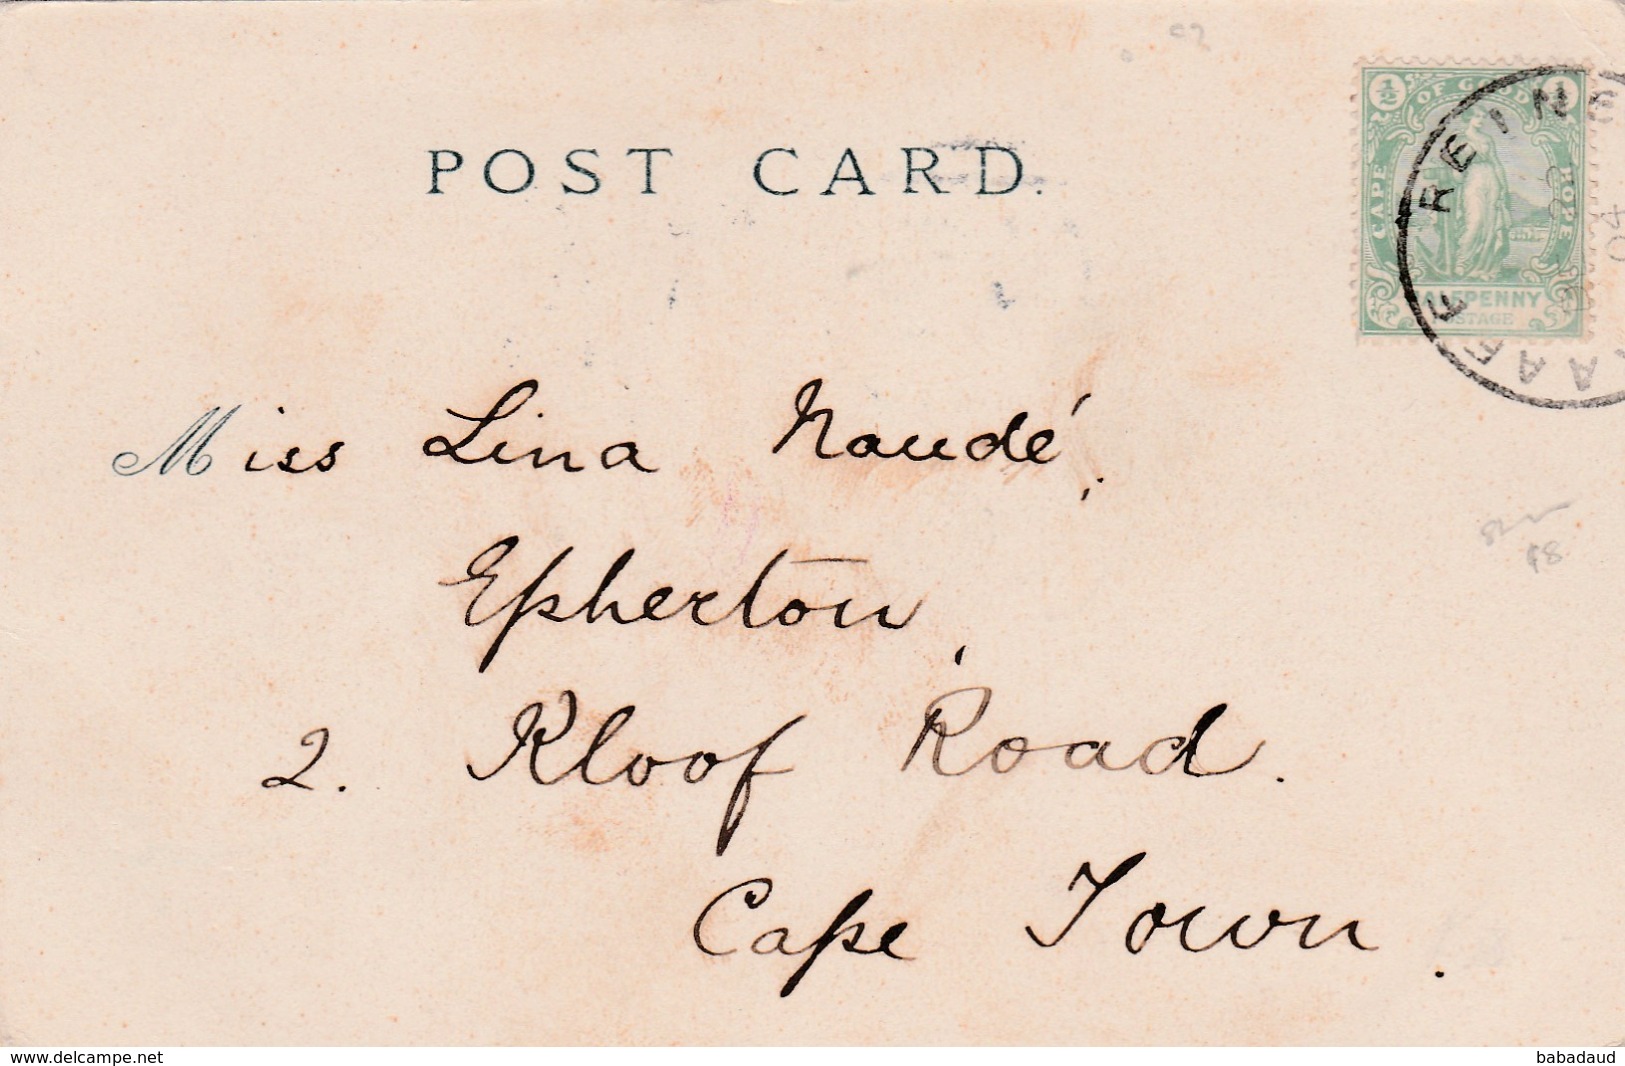 POST CARD.
CAPE OF GOOD HOPE
½ ½
HALFPENNY
POSTAGE
GRAAFF REINET
04
Miss Lina Naudé,
Epherton,
2. Kloof Road.
Cape Town.
98
www.delcampe.net
babadaud